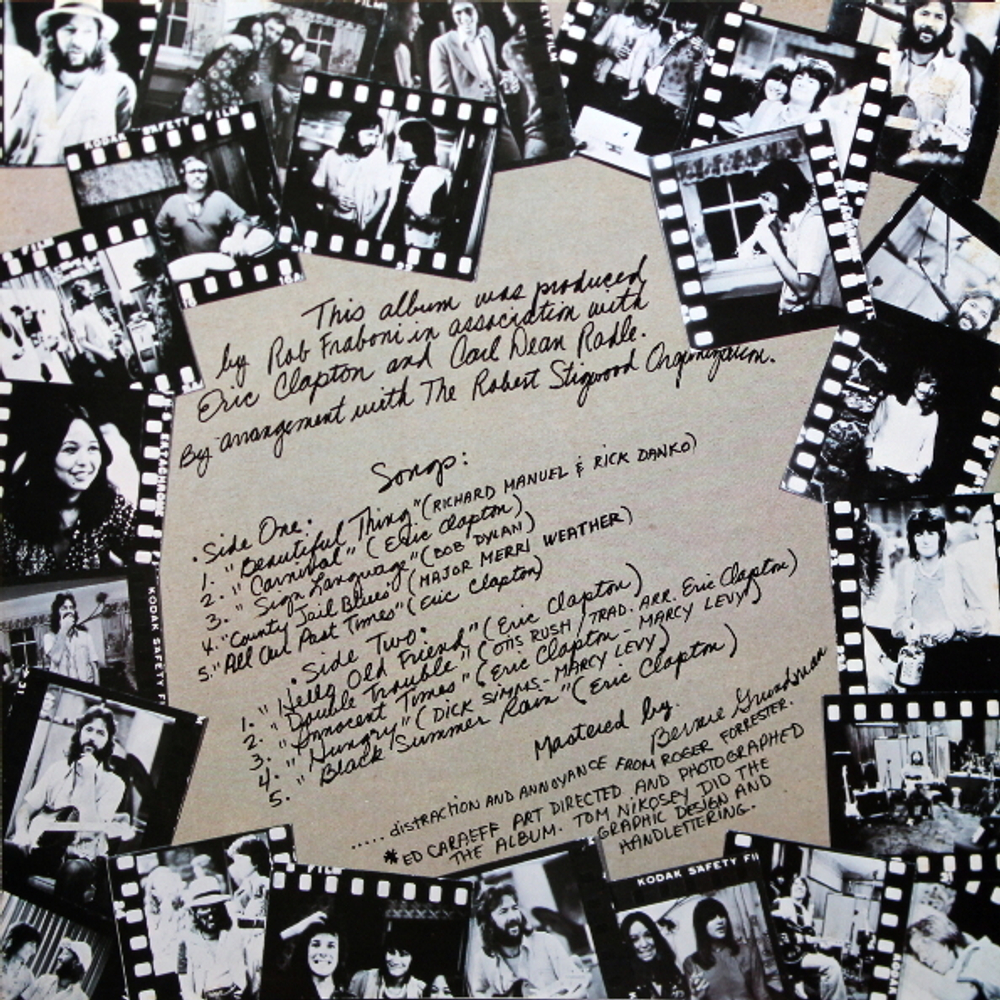 KODAK SAFETY FILM
This album was produced
by Rob Fraboni in association with
Eric Clapton and Carl Dean Radle.
By arrangement with The Robert Stigwood Organization.
Songs:
• Side One •
1. "Beautiful Thing" (RICHARD MANUEL & RICK DANKO)
2. "Carnival" (Eric Clapton)
3. "Sign Language" (BOB DYLAN)
4. "County Jail Blues" (MAJOR MERRI WEATHER)
5. "All Our Past Times" (Eric Clapton)
• Side Two •
1. "Hello Old Friend" (Eric Clapton)
2. "Double Trouble" (OTIS RUSH / TRAD. ARR. Eric Clapton)
3. "Innocent Times" (Eric Clapton - MARCY LEVY)
4. "Hungry" (DICK SIMMS - MARCY LEVY)
5. "Black Summer Rain" (Eric Clapton)
Mastered by:
Bernie Grundman
.....distraction AND ANNOYANCE FROM ROGER FORRESTER.
*ED CARAEFF ART DIRECTED AND PHOTOGRAPHED
THE ALBUM. TOM NIKOSEY DID THE
GRAPHIC DESIGN AND
HANDLETTERING.
KODAK SAFETY F
KODAK SAFETY FI